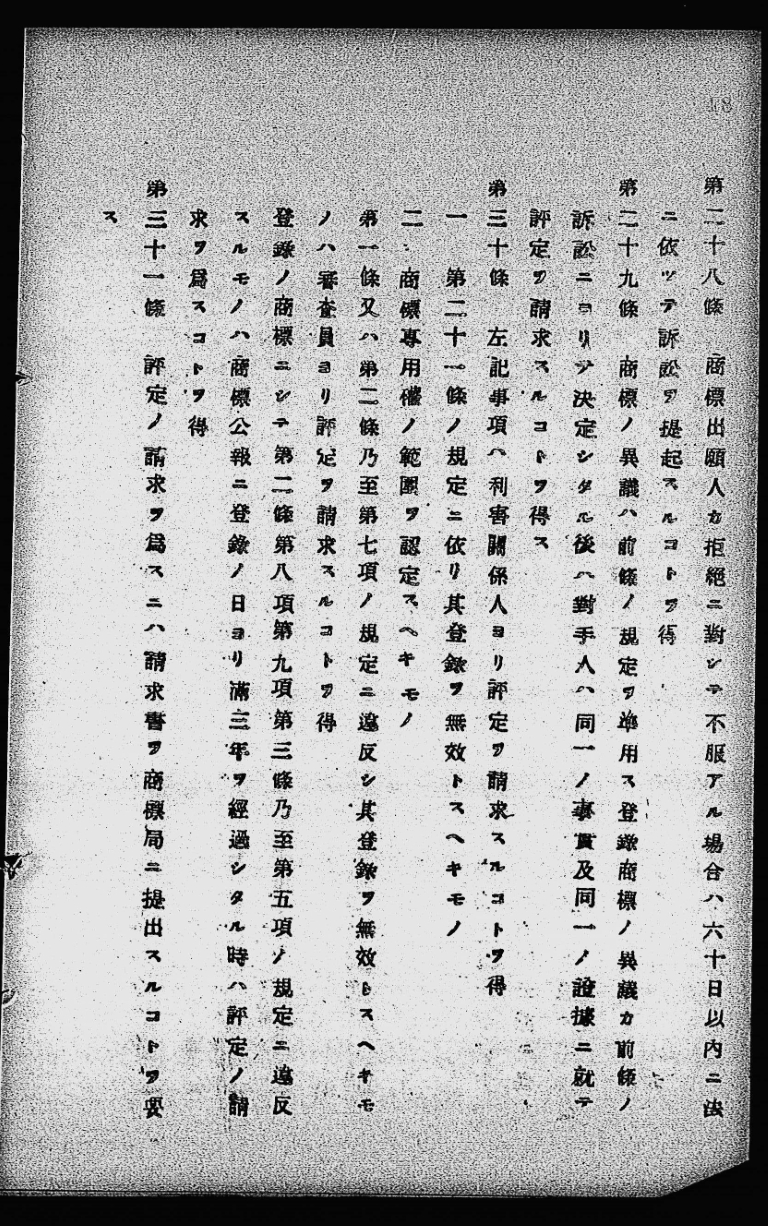 第二十八條　商標出願人カ拒絕ニ對シテ不服アル場合ハ六十日以內ニ法
ニ依ツテ訴訟ヲ提起スルコトヲ得
第二十九條　商標ノ異議ハ前條ノ規定ヲ準用ス登錄商標ノ異議カ前條ノ
訴訟ニヨリテ決定シタル後ハ對手人ハ同一ノ事實及同一ノ證據ニ就テ
評定ヲ請求スルコトヲ得ス
第三十條　左記事項ハ利害關係人ヨリ評定ヲ請求スルコトヲ得
一　第二十一條ノ規定ニ依リ其登錄ヲ無效トスヘキモノ
二　商標專用權ノ範圍ヲ認定スヘキモノ
第一條又ハ第二條乃至第七項ノ規定ニ違反シ其登錄ヲ無效トスヘキモ
ノハ審查員ヨリ評定ヲ請求スルコトヲ得
登錄ノ商標ニシテ第二條第八項第九項第三條乃至第五項ノ規定ニ違反
スルモノハ商標公報ニ登錄ノ日ヨリ滿三年ヲ經過シタル時ハ評定ノ請
求ヲ爲スコトヲ得
第三十一條　評定ノ請求ヲ爲スニハ請求書ヲ商標局ニ提出スルコトヲ要
ス